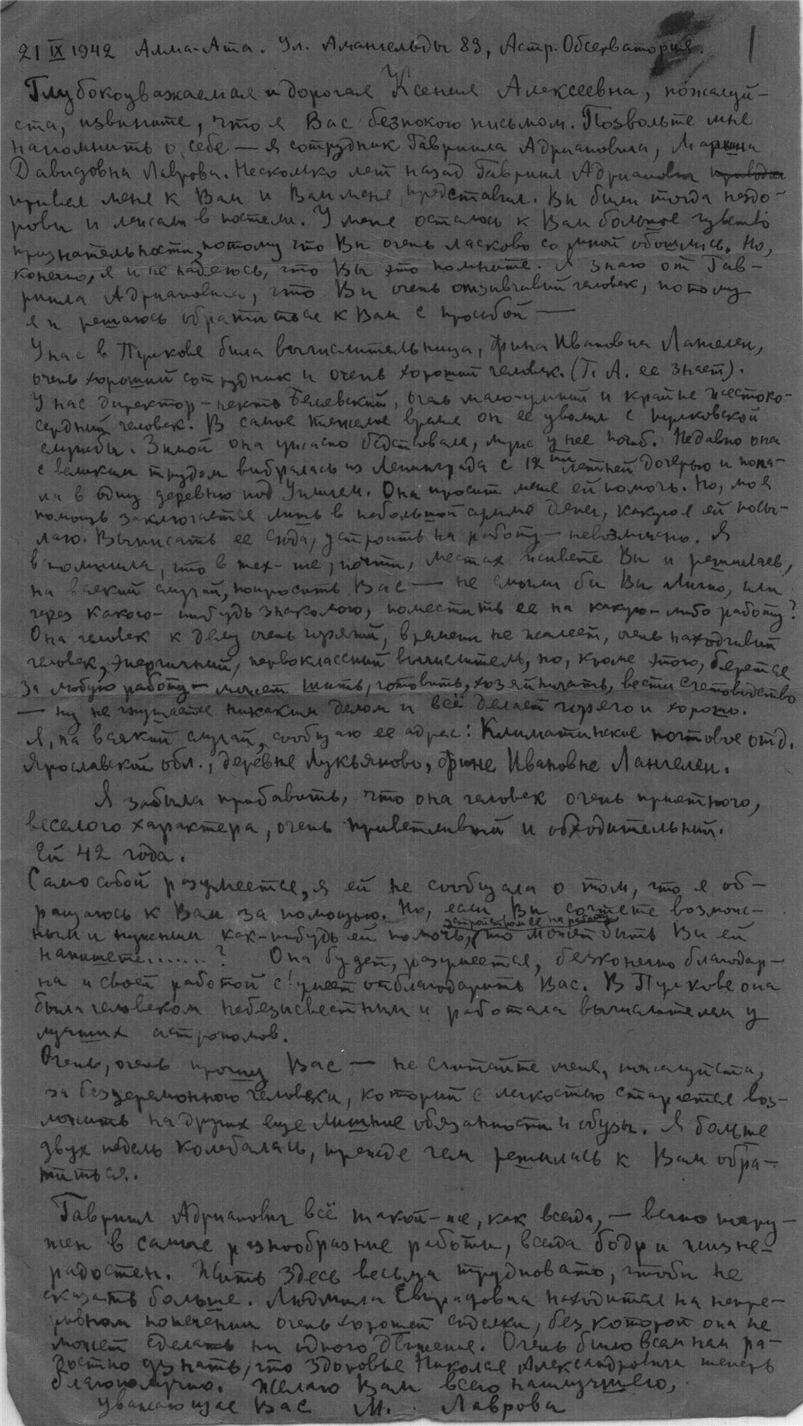 21 IX 1942 Алма-Ата. Ул. Амангельды 83, Астр. Обсерватория. 1
Глубокоуважаемая и дорогая Ксения Алексеевна, пожалуй-
ста, извините, что я Вас безпокою письмом. Позвольте мне
напомнить о себе — я сотрудник Гавриила Адриановича, Марина
Давидовна Лаврова. Несколько лет назад Гавриил Адрианович
привел меня к Вам и Вам меня представил. Вы были тогда нездо-
ровы и лежали в постели. У меня осталось к Вам большое чувство
признательности, потому что Вы очень ласково со мной обошлись. Но,
конечно, я и не надеюсь, что Вы это помните. Я знаю от Гав-
риила Адриановича, что Вы очень отзывчивый человек, потому
я и решаюсь обратиться к Вам с просьбой —
У нас в Пулкове была вычислительница, Фрина Ивановна Лангелен,
очень хороший сотрудник и очень хороший человек (Г. А. ее знает).
У нас директор - некто Белявский, очень мало-умный и крайне жестоко-
сердный человек. В самое тяжелое время он ее уволил с пулковской
службы. Зимой она ужасно бедствовала, муж у нее погиб. Недавно она
с великим трудом выбралась из Ленинграда с 12 летней дочерью и попа-
ла в одну деревню под Угличем. Она просит меня ей помочь. Но, моя
помощь заключается лишь в небольшой сумме денег, какую я ей посы-
лаю. Выписать ее сюда, устроить на работу — невозможно. Я
вспомнила, что в тех-же, почти, местах живете Вы и решилась,
на всякий случай, попросить Вас — не смогли бы Вы лично, или
через какого-нибудь знакомого, поместить ее на какую-либо работу?
Она человек к делу очень горячий, времени не жалеет, очень находчивый
человек, энергичный, первоклассный вычислитель, но, кроме этого, берется
за любую работу — может шить, готовить, хозяйничать, вести счетоводство
— ну не гнушается никаким делом и всё делает горячо и хорошо.
Я, на всякий случай, сообщаю ее адрес: Климатинское почтовое отд.
Ярославской обл., деревня Лукьяново, Фрине Ивановне Лангелен.
Я забыла прибавить, что она человек очень приятного,
веселого характера, очень приветливый и обходительный.
Ей 42 года.
Само собой разумеется, я ей не сообщала о том, что я об-
ращаюсь к Вам за помощью. Но, если Вы сочтете возмож-
ным и нужным как-нибудь ей помочь, то может быть Вы ей
напишете.......? Она будет, разумеется, безконечно благодар-
на и своей работой сумеет отблагодарить Вас. В Пулкове она
была человеком небезызвестным и работала вычислителем у
лучших астрономов.
Очень, очень прошу Вас — не считайте меня, пожалуйста,
за безцеремонного человека, который с легкостью старается воз-
ложить на других еще лишние обязанности и обузы. Я больше
двух недель колебалась, прежде чем решилась к Вам обра-
титься.
Гавриил Адрианович всё такой-же, как всегда, — вечно погру-
жен в самые разнообразные работы, всегда бодр и жизне-
радостен. Жить здесь весьма трудновато, чтобы не
сказать больше. Людмила Евграфовна находится на непре-
рывном попечении очень хорошей сиделки, без которой она не
может сделать ни одного движения. Очень было всем нам ра-
достно узнать, что здоровье Николая Александровича теперь
благополучно. Желаю Вам всего наилучшего,
уважающая Вас М. Лаврова